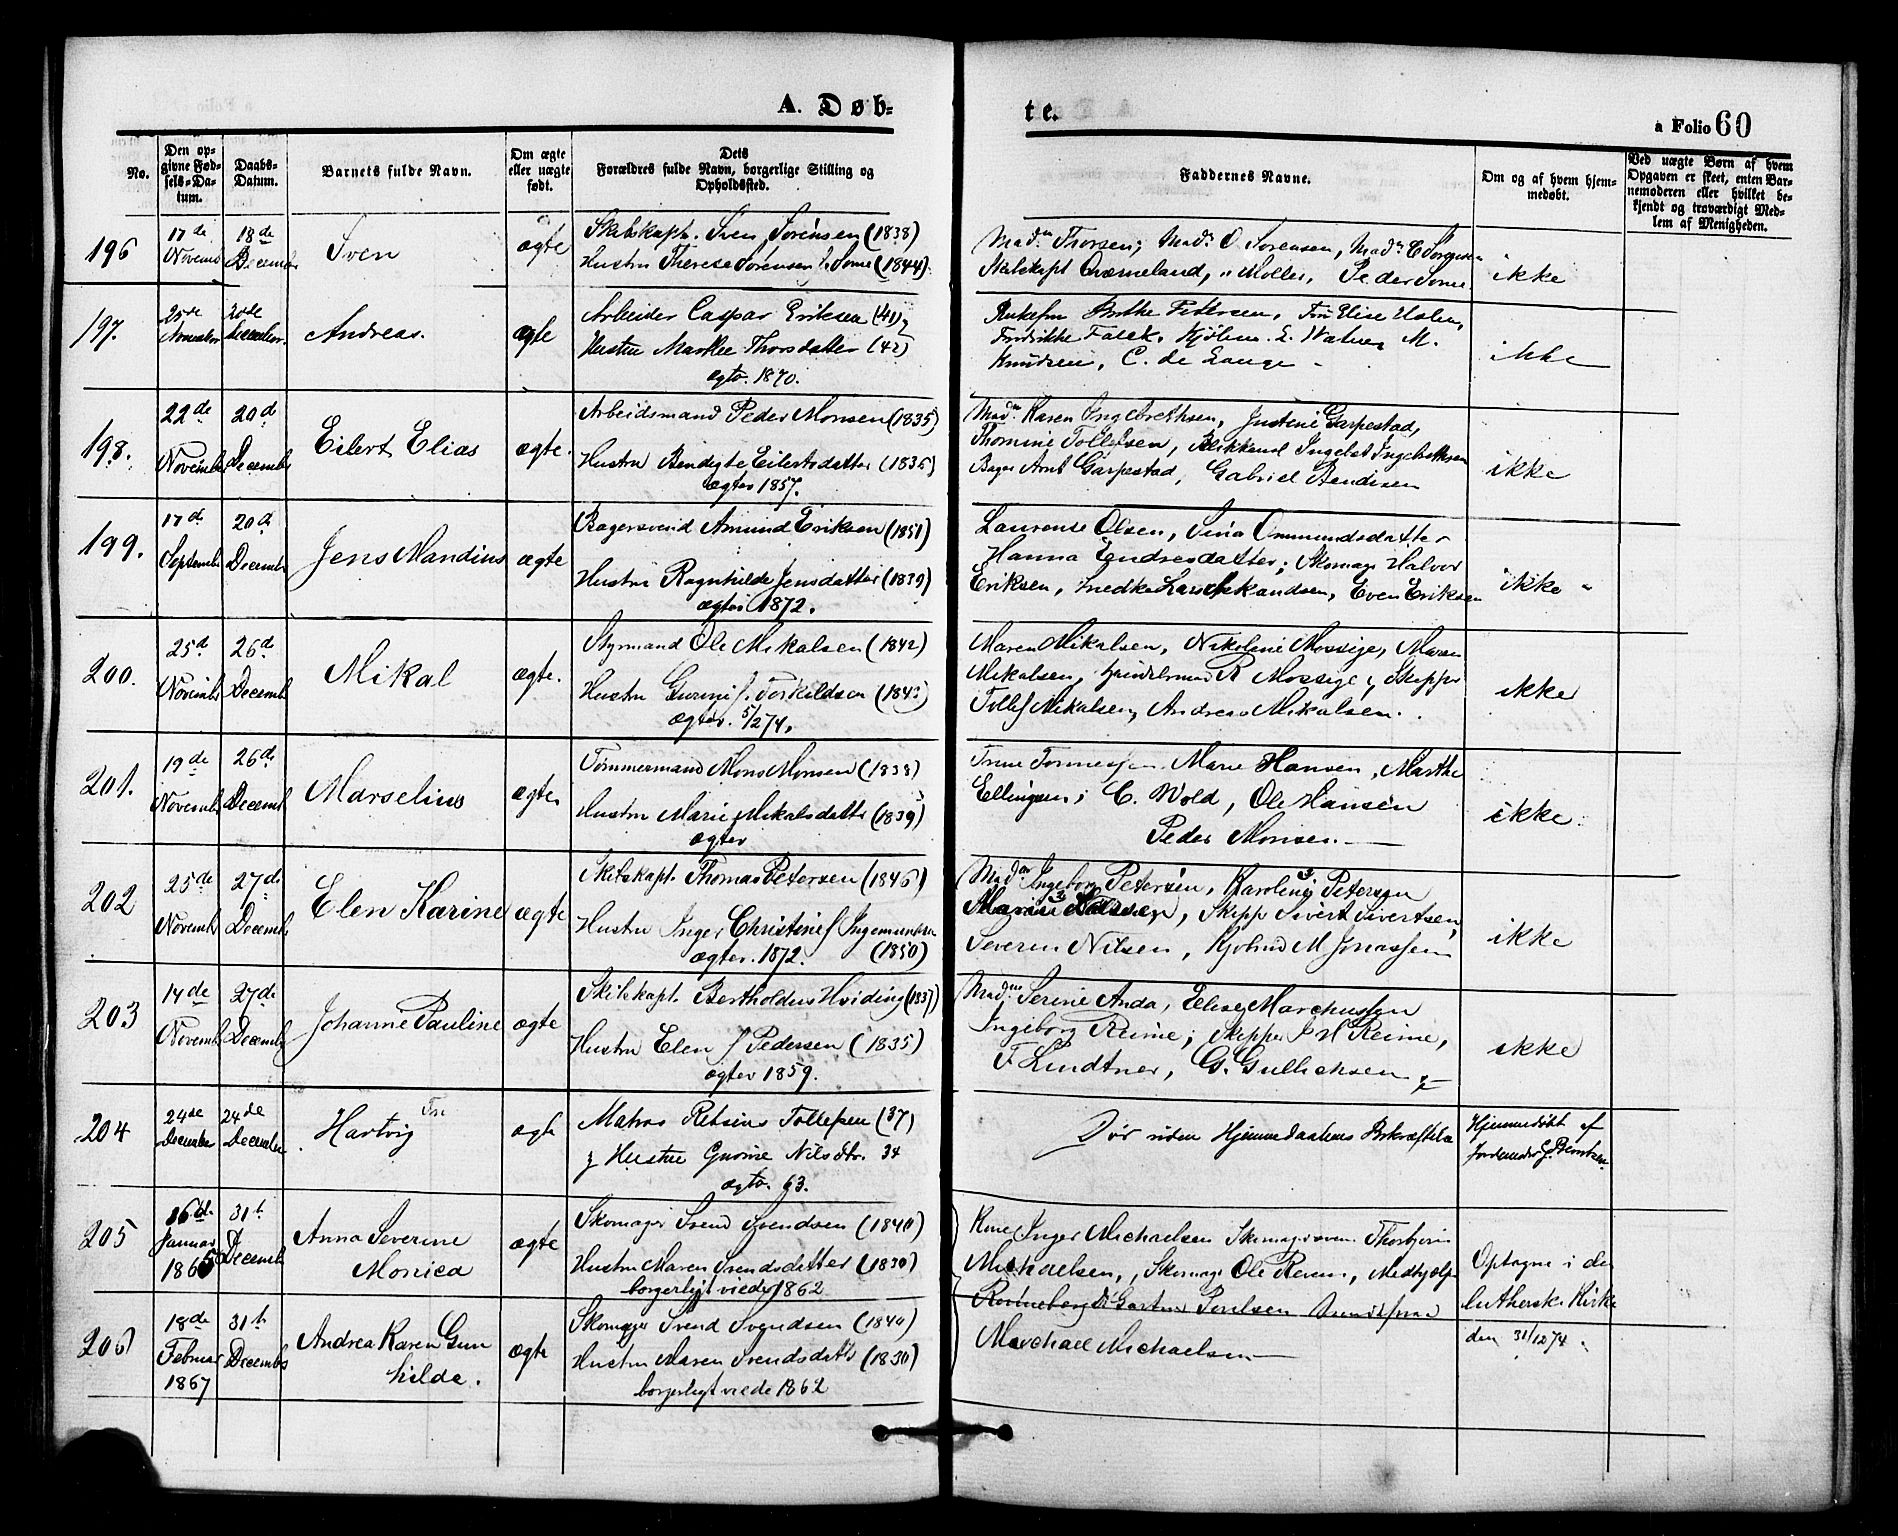 A. Døb-
te.
a Folio 60
No.
Den op-
givne Fød-
sels-Da-
tum.
Daabs-
Datum.
Barnets fulde Navn.
Om ægte
eller uægte
født.
Dets
Forældres fulde Navn, borgerlige Stilling og
Opholdssted.
Faddernes Navne.
Om og af hvem hjem-
medøbt.
Ved uægte Børn af hvem
Opgaven er skeet, enten Bar-
nemoderen eller hvilket be-
kjendt og troværdigt Med-
lem af Menigheden.
196
17de
Novemb
18de
Decemb
Sven
ægte
Skibskapt. Sven Sørensen (1838)
Hustru Therese Sørensen f. Sømme (1844)
Madm Thorsen; Madm O Sørensen, Madm C Sørensen
Skibskapt Qværneland, Møller, Peder Sømme
ikke
197.
25de
November
20de
December.
Andreas.
ægte
Arbeider Caspar Eriksen (41)
Hustru Marthe Thorsdatter (42)
ægtv. 1870.
Pettersen, Elise Holm,
Fredrikke Falck, Kjøbm. L. Watne, M.
Knudsen, C. de Lange
ikke
198.
22de
Novemb
20d
Decemb
Eilert Elias
ægte.
Arbeidsmand Peder Monsen (1835)
Hustru Bendigte Eilertsdatter (1835)
ægtev 1857.
Madm Karen Ingebrethsen, Justine Garpestad,
Thomine Tollefsen, Blikkensl Ingebr Ingebrethsen
Bager Arnt Garpestad, Gabriel Bendixen
ikke
199.
17d
Septemb
20d
Decemb
Jens Mandius
ægte
Bagersvend Amund Eriksen (1851)
Hustru Ragnhilde Jensdatter (1839)
ægtev 1872.
Laurense Olsen, Sina Ommundsdatter
Hanna Endresdatter; Skomag Halvor
Eriksen, Snedker Lars Askandsen, Even Eriksen
ikke
200.
25d
Novemb
26d
Decemb
Mikal
ægte.
Styrmand Ole Mikalsen (1842)
Hustru Gurine f. Torkildsen (1843)
ægtev. 5/2 74.
Maren Mikalsen, Nikoline Mossige, Maren
Mikalsen, Handelsmand R Mossige, Skipper
Tollef Mikalsen, Andreas Mikalsen.
ikke
201.
19de
Novemb
26d
Decemb
Marselius
ægte
Tømmermand Mons Monsen (1838)
Hustru Marie Mikalsdatter (1839)
ægtev
Trine Tønnesen Marie Hansen, Marthe
Ellingsen; C. Wold, Ole Hansen
Peder Monsen.
ikke.
202
25de
Novemb
27d
Decemb
Elen Karine
ægte
Skibskapt. Thomas Petersen (1846)
Hustru Inger Christine f Ingemundsen
ægtev. 1872. (1850)
Madm Ingeborg Petersen, Karoline Petersen
Marie, Skipp Sivert Sivertsen,
Severin Nilsen, Kjøbmd M Jonassen
ikke
203
14de
Novemb
27de
Decemb
Johanne Pauline
ægte
Skibskapt. Bertholdus Hviding (1837)
Hustru Elen f Pedersen (1835)
ægtev 1859.
Madm Serine Anda, Elise Marcussen
Ingeborg Reime; Skipper J H Reime,
F Lindtner, G. Gullichsen
ikke
204
24de
December
24de
December
Hartvig
ægte
Matros Retsius Tollefsen (37)
Hustru Gurine Nilsdtr. 34
ægtv. 63.
Dør uden Hjemmedaabens Bekræftelse
Hjemmedøbt af
Jordemoder G. Berntsen.
205
16de
Januar
1865
31te
Decemb
Anna Severine
Monica
ægte
Skomager Svend Svendsen (1840)
Hustru Maren Svendsdatter (1830)
borgerligt viede 1862
Inger Michaelsen Skomagersvend Thorbjørn
Michaelsen, Skomag Ole Reven, Medhjælper
Michael Michaelsen
Optagne i den
lutherske Kirke
den 31/12 74.
206
18de
Februar
1867
31te
Decemb
Andrea Karen Gun
hilde.
ægte
Skomager Svend Svendsen (1840)
Hustru Maren Svendsdatt (1830)
borgerligt viede 1862